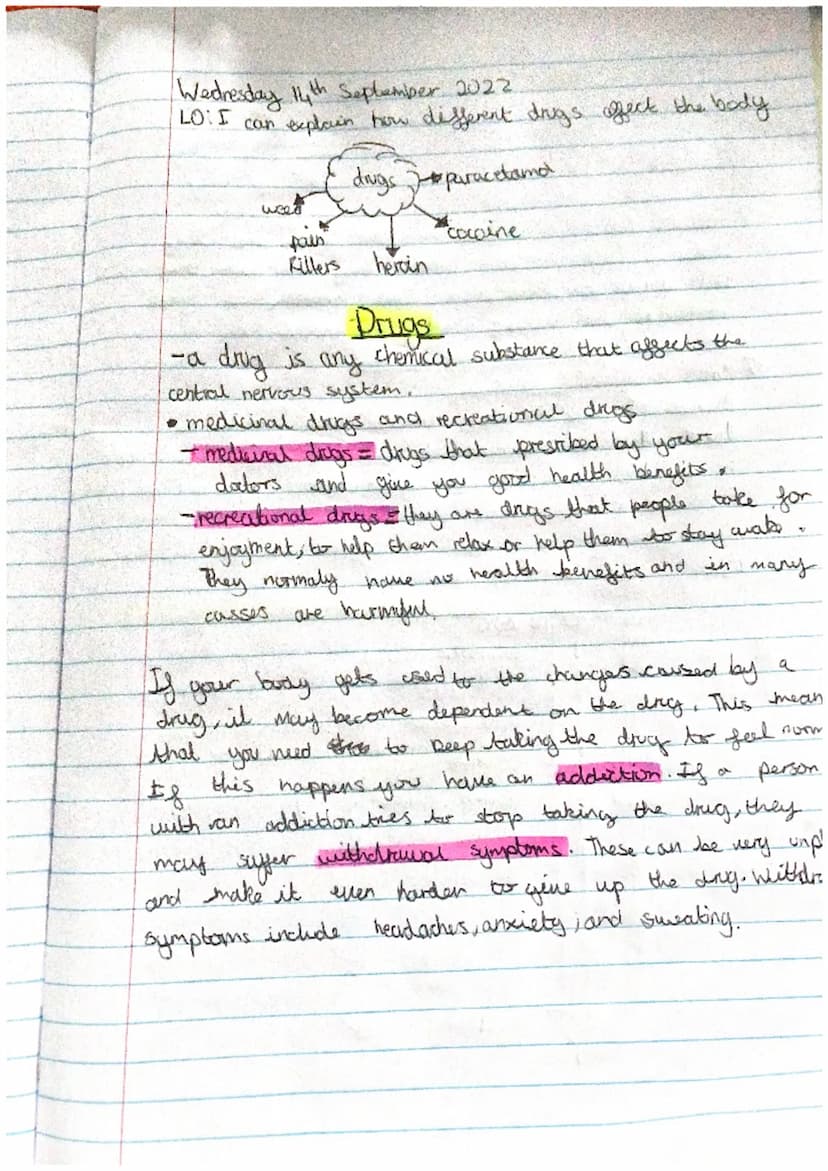 Wednesday 14th September 2022
LO: I can explain how different drugs affect the body
drugs
paracetamol
weed
cocaine
pain
killers
heroin
Drugs
-a drug is any chemical substance that affects the
central nervous system.
• medicinal drugs and recreational drugs
- medicinal drugs = drugs that presribed by your
doctors and give you good health benefits.
- recreational drugs = they are drugs that people take for
enjoyment, to help them relax or help them to stay awake.
They normaly have no health benefits and in many
casses are harmful.
If your body gets used to the changes caused by a
drug, it may become dependent on the drug. This mean
that you need to keep taking the drug to feel norm
If this happens you have an addiction. If a person
with an addiction tries to stop taking the drug, they
may suffer withdrawal symptoms. These can be very unpl
and make it even harder to give up the drug. Withdra
symptoms include headaches, anxiety, and sweating.